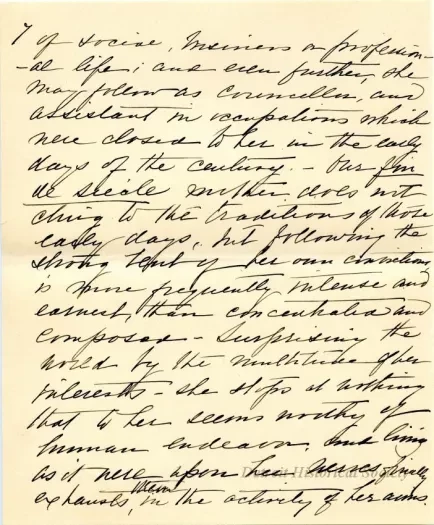 7 of social, business or profession-
-al life; and even further, she
may follow as councillor, and
assistant in occupations which
were closed to her in the early
days of the century. - Our fin
de siècle mother does not
cling to the traditions of those
early days, but following the
strong bent of her own convictions
is more frequently intense and
earnest, than concentrated and
composed - Surprising the
world by the multitude of her
interests - she stops at nothing
that to her seems worthy of
human endeavor, and living
as it were upon her nerves, finally
exhausts them in the activity of her aims.
Detroit Historical Society